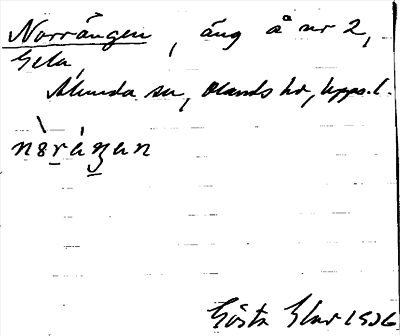 Norrängen, äng å nr 2,
Gela,
Alunda sn, Olands hd, Upps.l.
Gösta Elar 1936